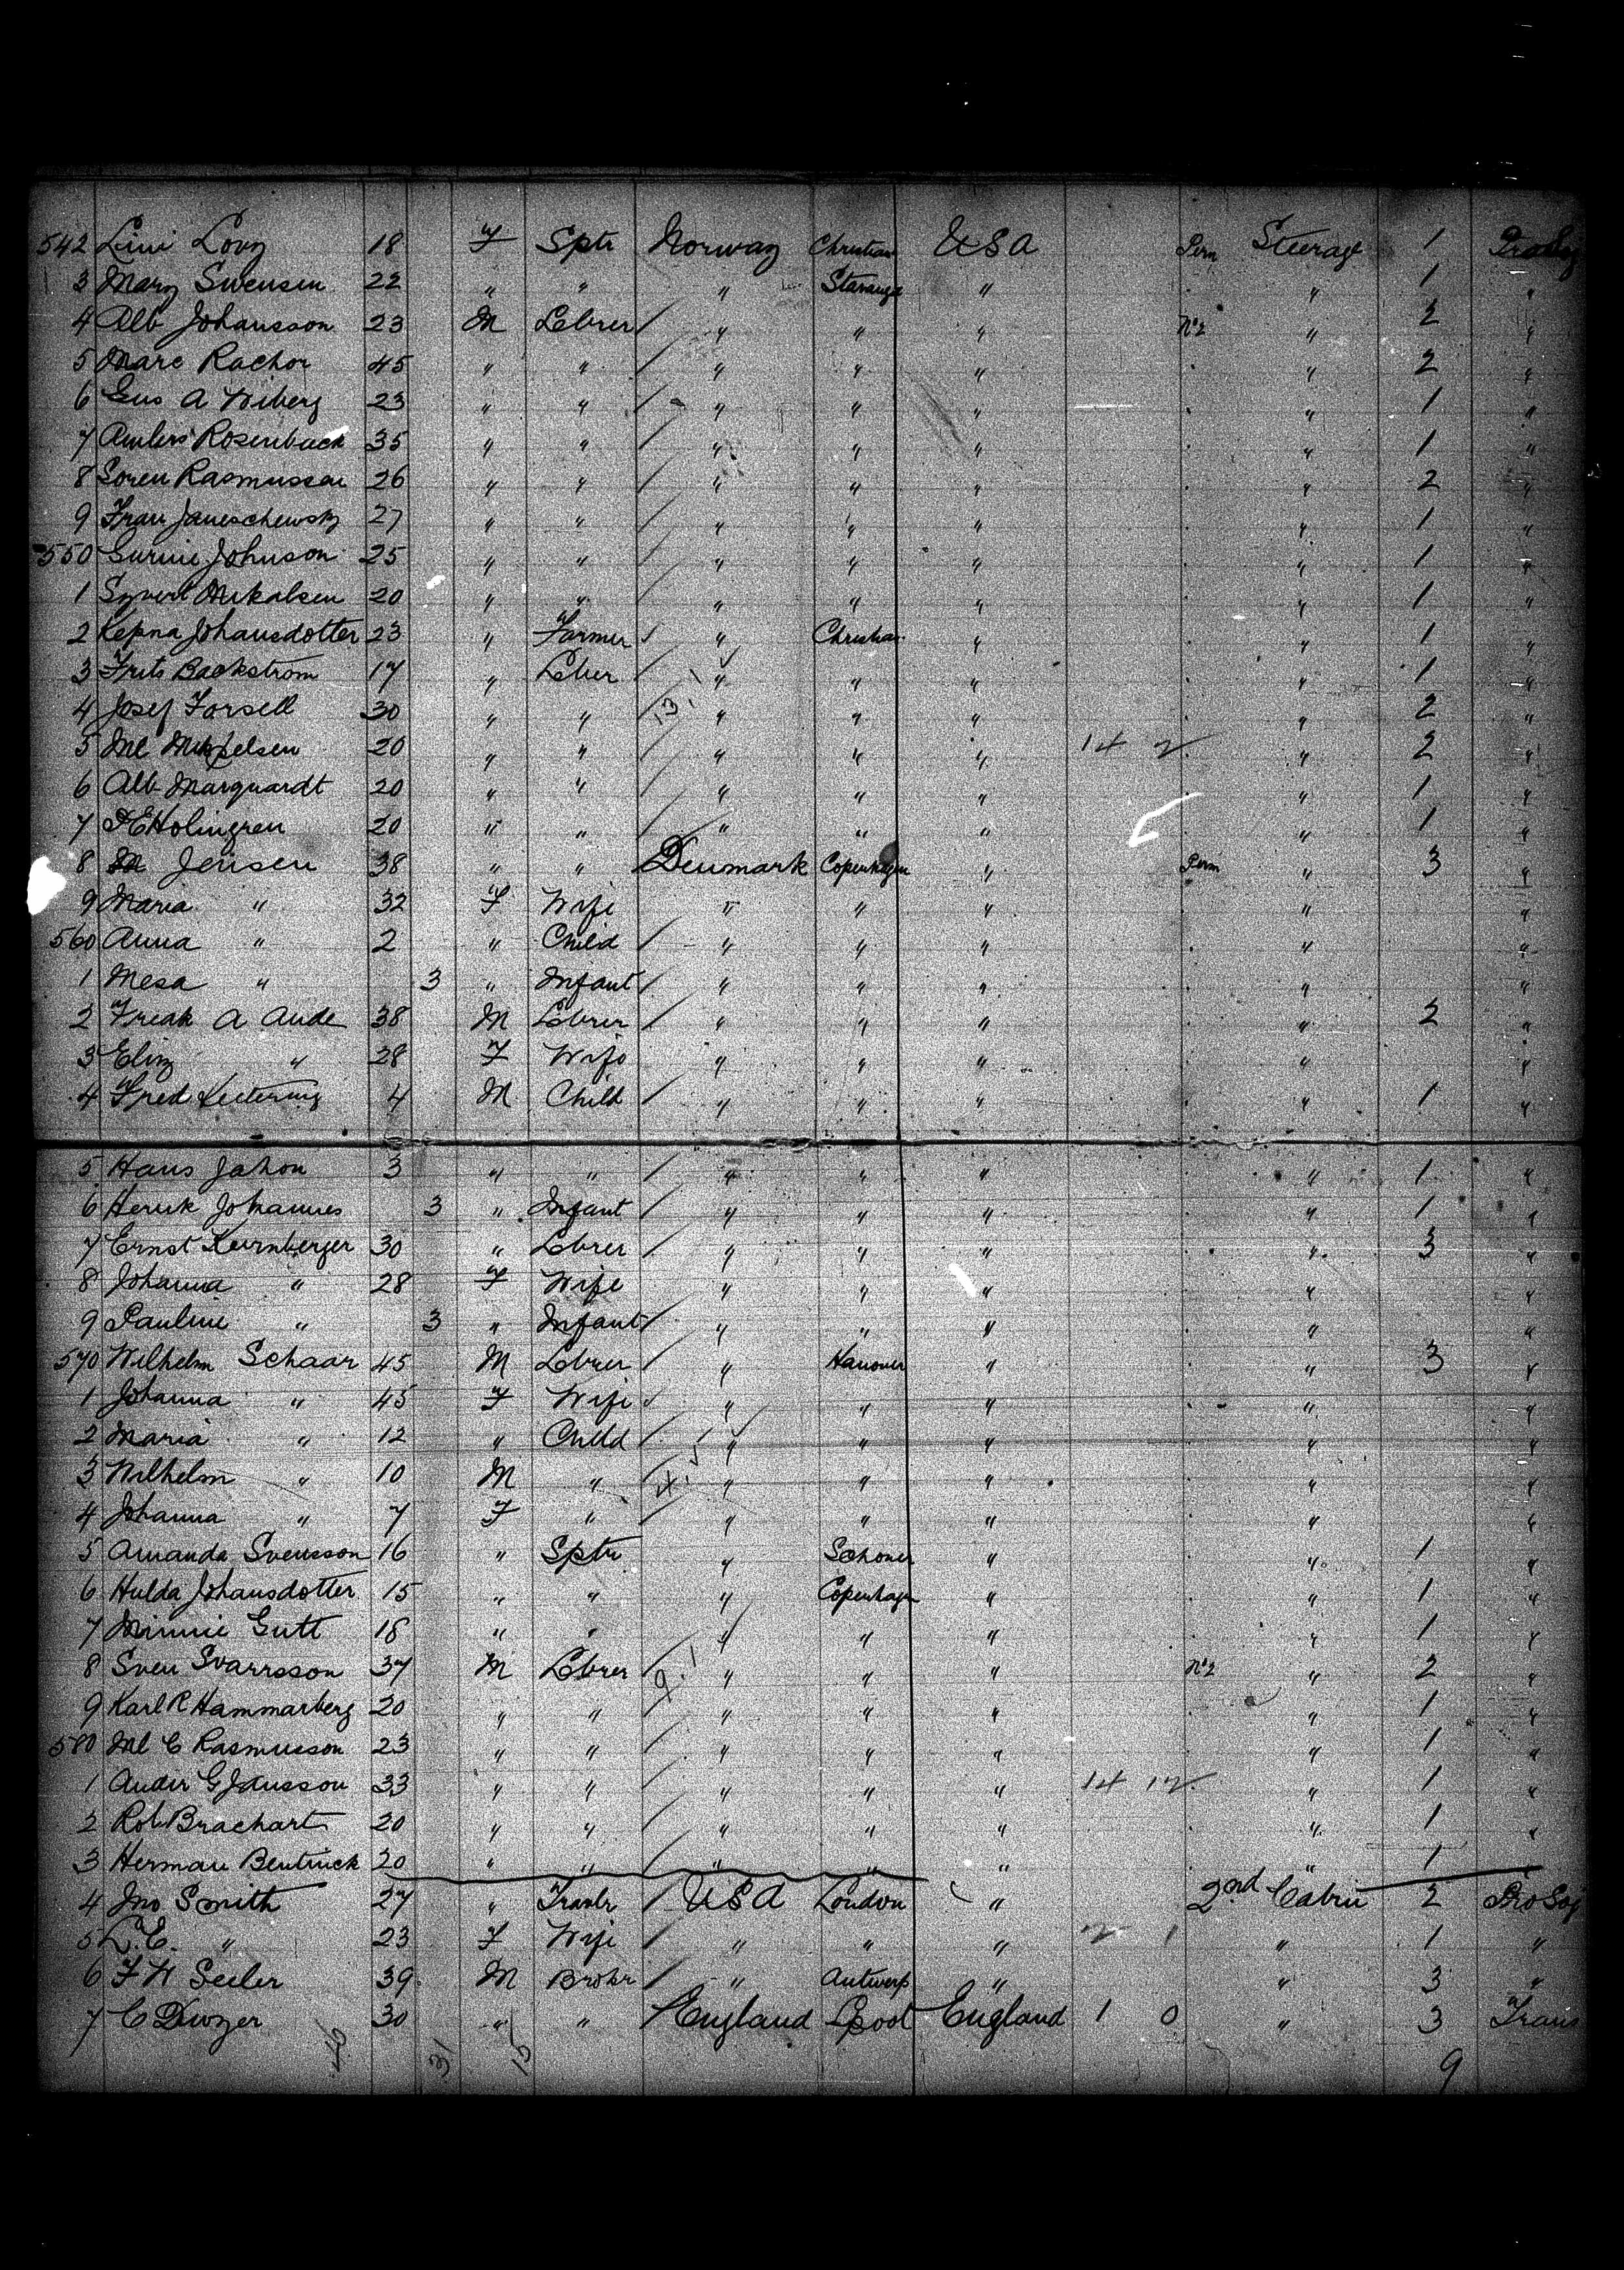 542 Lini Lovy 18 F Sptr Norway Christian USA Perm Steerage 1
3 Mary Swensen 22 " " " Stavanger " " 1 "
4 Alb Johansson 23 M Lebrer / " " " No 2 " 2 "
5 Marc Rachor 45 " " / " " " " 2 "
6 Gus A Wiberg 23 " " / " " " " 1 "
7 Rosenback 35 " " / " " " " 1 "
8 Soren Rasmussen 26 " " / " " " " 2 "
9 Frau Janeschewsky 27 " " / " " " " 1 "
550 Johnson 25 " " / " " " " 1 "
1 Syvert Mikalsen 20 " " / " " " " 1 "
2 Johansdotter 23 " Farmer / " Christian " " 1 "
3 Frits Backstrom 17 " Leber / " " " " 1 "
4 Josef Forsell 30 " " / 13. " " " " 2 "
5 Ml Mikkelsen 20 " " / " " " 14 2 " 2 "
6 Alb Marquardt 20 " " / " " " " 1 "
7 Holingren 20 " " / " " " " 1 "
8 Jensen 38 " " Denmark Copenhagen " Perm " 3 "
9 Maria " 32 F Wife " " " " "
560 Anna " 2 " Child / " " " " "
1 Mesa " 3 " Infant / " " " " "
2 Freak A Aude 38 M Lebrer / " " " " 2 "
3 Eliz " 28 F Wife " " " " "
4 Fred 4 M Child / " " " " 1 "
5 Hans Jahon 3 " " / " " " " 1 "
6 Henrik Johannes 3 " Infant / " " " " 1 "
7 Ernst Kurnberger 30 " Lebrer / " " " " 3 "
8 Johanna " 28 F Wife " " " " "
9 Pauline " 3 " Infant / " " " " "
570 Wilhelm Schaar 45 M Lebrer / " Hanover " " 3 "
1 Johanna " 45 F Wife " " " " "
2 Maria " 12 " Child / " " " " "
3 Wilhelm " 10 M " / " " " " "
4 Johanna " 7 F " / " " " " "
5 Amanda Svensson 16 " Sptr " Schonen " " 1 "
6 Hulda Johansdotter 15 " " " Copenhagen " " 1 "
7 Minnie Gutt 18 " " " " " " 1 "
8 Sven Svarrsson 37 M Lebrer / 9. " " " No 2 " 2 "
9 Karl R Hammarberg 20 " " / " " " " 1 "
580 Ml C Rasmusson 23 " " / " " " " 1 "
1 Ander G Jansson 33 " " / " " " 14 12 " 1 "
2 Rob Brachart 20 " " / " " " " 1 "
3 Herman Bentrick 20 " " / " " " " 1
4 Jno Smith 27 " Travlr / USA London " 2nd Cabin 2
5 L.E. " 23 F Wife / " " " 2 1 " 1 "
6 F W Seeler 39 M Brokr / " Antwerp " " 3 "
7 C Dwyer 30 " " / England Lpool England 1 0 " 3 Trans
31 15 9